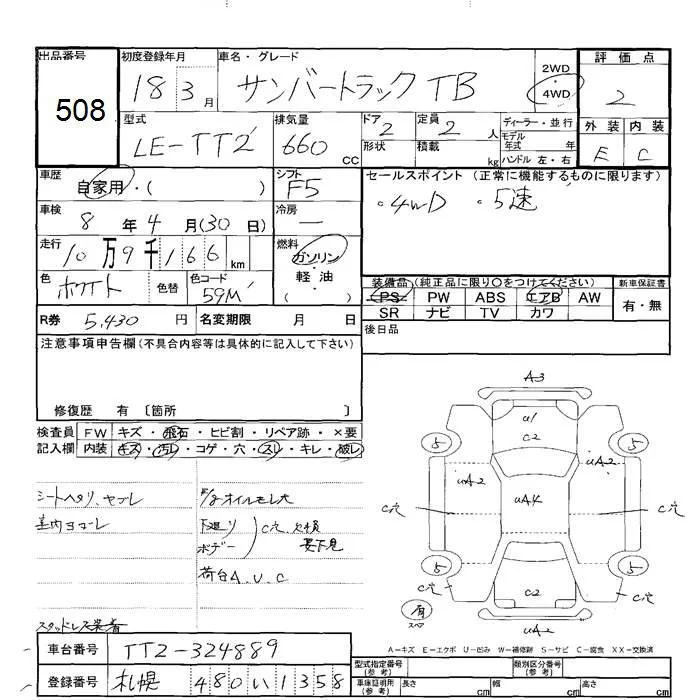 出品番号
508
初度登録年月
18 3 月
車名・グレード
サンバートラック TB
2WD
4WD
評価点
2
外装 内装
E C
型式
LE-TT2
排気量
660 CC
ドア
2
形状
定員
2 人
積載 kg
ディーラー・並行
モデル
年式 年
ハンドル 左・右
車歴
自家用・( )
シフト
F5
セールスポイント (正常に機能するものに限ります)
・4WD ・5速
車検
8 年 4 月(30 日)
冷房
走行
10万9千166 km
燃料
ガソリン
軽・油
( )
色
ホワイト
色替
色コード
59M
装備品(純正品に限り○をつけてください)
PS PW ABS エアB AW
SR ナビ TV カワ
新車保証書
有・無
R券 5,430 円
名変期限 月 日
後日品
注意事項申告欄(不具合内容等は具体的に記入して下さい)
修復歴 有 〔箇所 〕
検査員
記入欄
FW キズ・飛石・ヒビ割・リペア跡・×要
内装 キズ・汚レ・コゲ・穴・スレ・キレ・破レ
シートヘタリ、ヤブレ
室内ヨゴレ
オイルモレ大
下廻リ
ボデー
C穴、欠損
要下見
荷台A、U、C
スタッドレス装着
A3
U1
C2
5
5
uA2
uA2
uA4
C穴
C穴
5
5
C穴
C穴
C2
有
スペア
uA2
A-キズ E-エクボ U-凹み W-補修跡 S-サビ C-腐食 XX-交換済
車台番号
TT2-324889
登録番号
札幌 480 い 1358
型式指定番号
(参考)
類別区分番号
(参考)
車庫証明用
(参考)
長さ cm
幅 cm
高さ cm